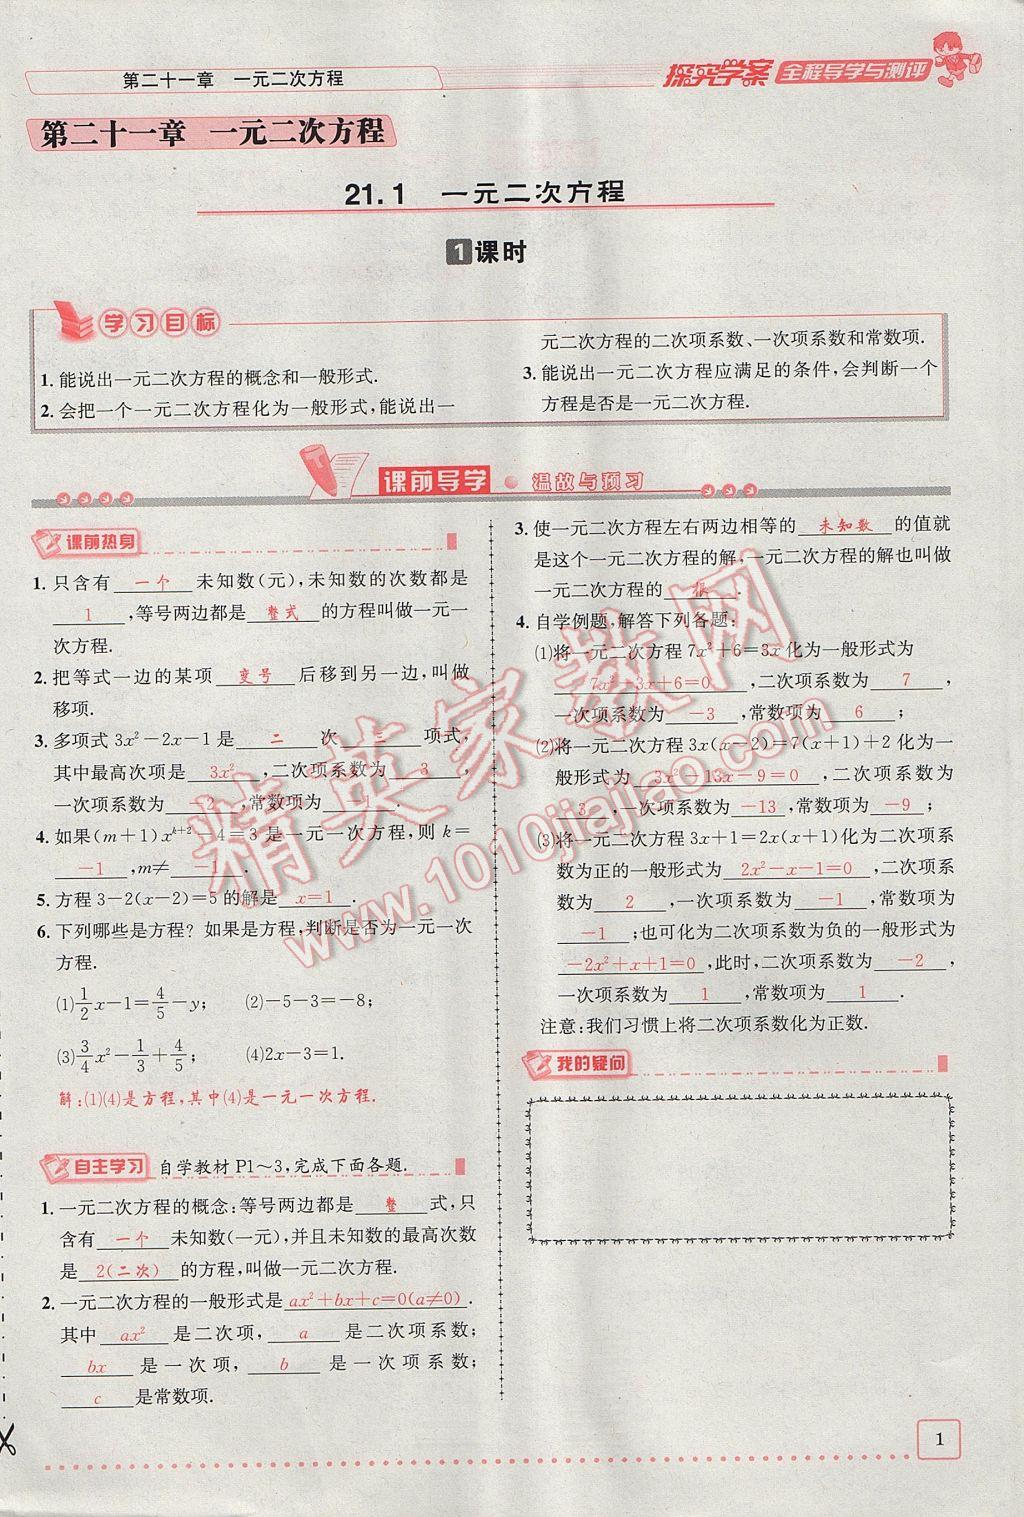 第二十一章 一元二次方程
探究学案 全程导学与测评
第二十一章 一元二次方程
21.1 一元二次方程
1课时
学习目标
1.能说出一元二次方程的概念和一般形式.
2.会把一个一元二次方程化为一般形式,能说出一
元二次方程的二次项系数、一次项系数和常数项.
3.能说出一元二次方程应满足的条件,会判断一个
方程是否是一元二次方程.
课前导学·温故与预习
课前热身
1.只含有 一个 未知数(元),未知数的次数都是
1 ,等号两边都是 整式 的方程叫做一元一
次方程.
2.把等式一边的某项 变号 后移到另一边,叫做
移项.
3.多项式3x²-2x-1是 二 次 三 项式,
其中最高次项是 3x² ,二次项系数为 3 ,
一次项系数为 -2 ,常数项为 -1 .
4.如果(m+1)x^{k+2}-4=3是一元一次方程,则k=
-1 ,m≠ -1 .
5.方程3-2(x-2)=5的解是 x=1 .
6.下列哪些是方程?如果是方程,判断是否为一元一次
方程.
(1)1/2x-1=4/5-y; (2)-5-3=-8;
(3)3/4x²-1/3+4/5; (4)2x-3=1.
解:(1)(4)是方程,其中(4)是一元一次方程.
自主学习 自学教材P1~3,完成下面各题.
1.一元二次方程的概念:等号两边都是 整 式,只
含有 一个 未知数(一元),并且未知数的最高次数
是 2(二次) 的方程,叫做一元二次方程.
2.一元二次方程的一般形式是 ax²+bx+c=0(a≠0) .
其中 ax² 是二次项, a 是二次项系数;
bx 是一次项, b 是一次项系数;
c 是常数项.
3.使一元二次方程左右两边相等的 未知数 的值就
是这个一元二次方程的解,一元二次方程的解也叫做
一元二次方程的 根 .
4.自学例题,解答下列各题:
(1)将一元二次方程7x²+6=3x化为一般形式为
7x²-3x+6=0 ,二次项系数为 7 ,
一次项系数为 -3 ,常数项为 6 ;
(2)将一元二次方程3x(x-2)=7(x+1)+2化为一
般形式为 3x²-13x-9=0 ,二次项系数为
3 ,一次项系数为 -13 ,常数项为 -9 ;
(3)将一元二次方程3x+1=2x(x+1)化为二次项系
数为正的一般形式为 2x²-x-1=0 ,二次项系
数为 2 ,一次项系数为 -1 ,常数项为
-1 ;也可化为二次项系数为负的一般形式为
-2x²+x+1=0 ,此时,二次项系数为 -2 ,
一次项系数为 1 ,常数项为 1 .
注意:我们习惯上将二次项系数化为正数.
我的疑问
1
精英家教网
www.1010jiajiao.com